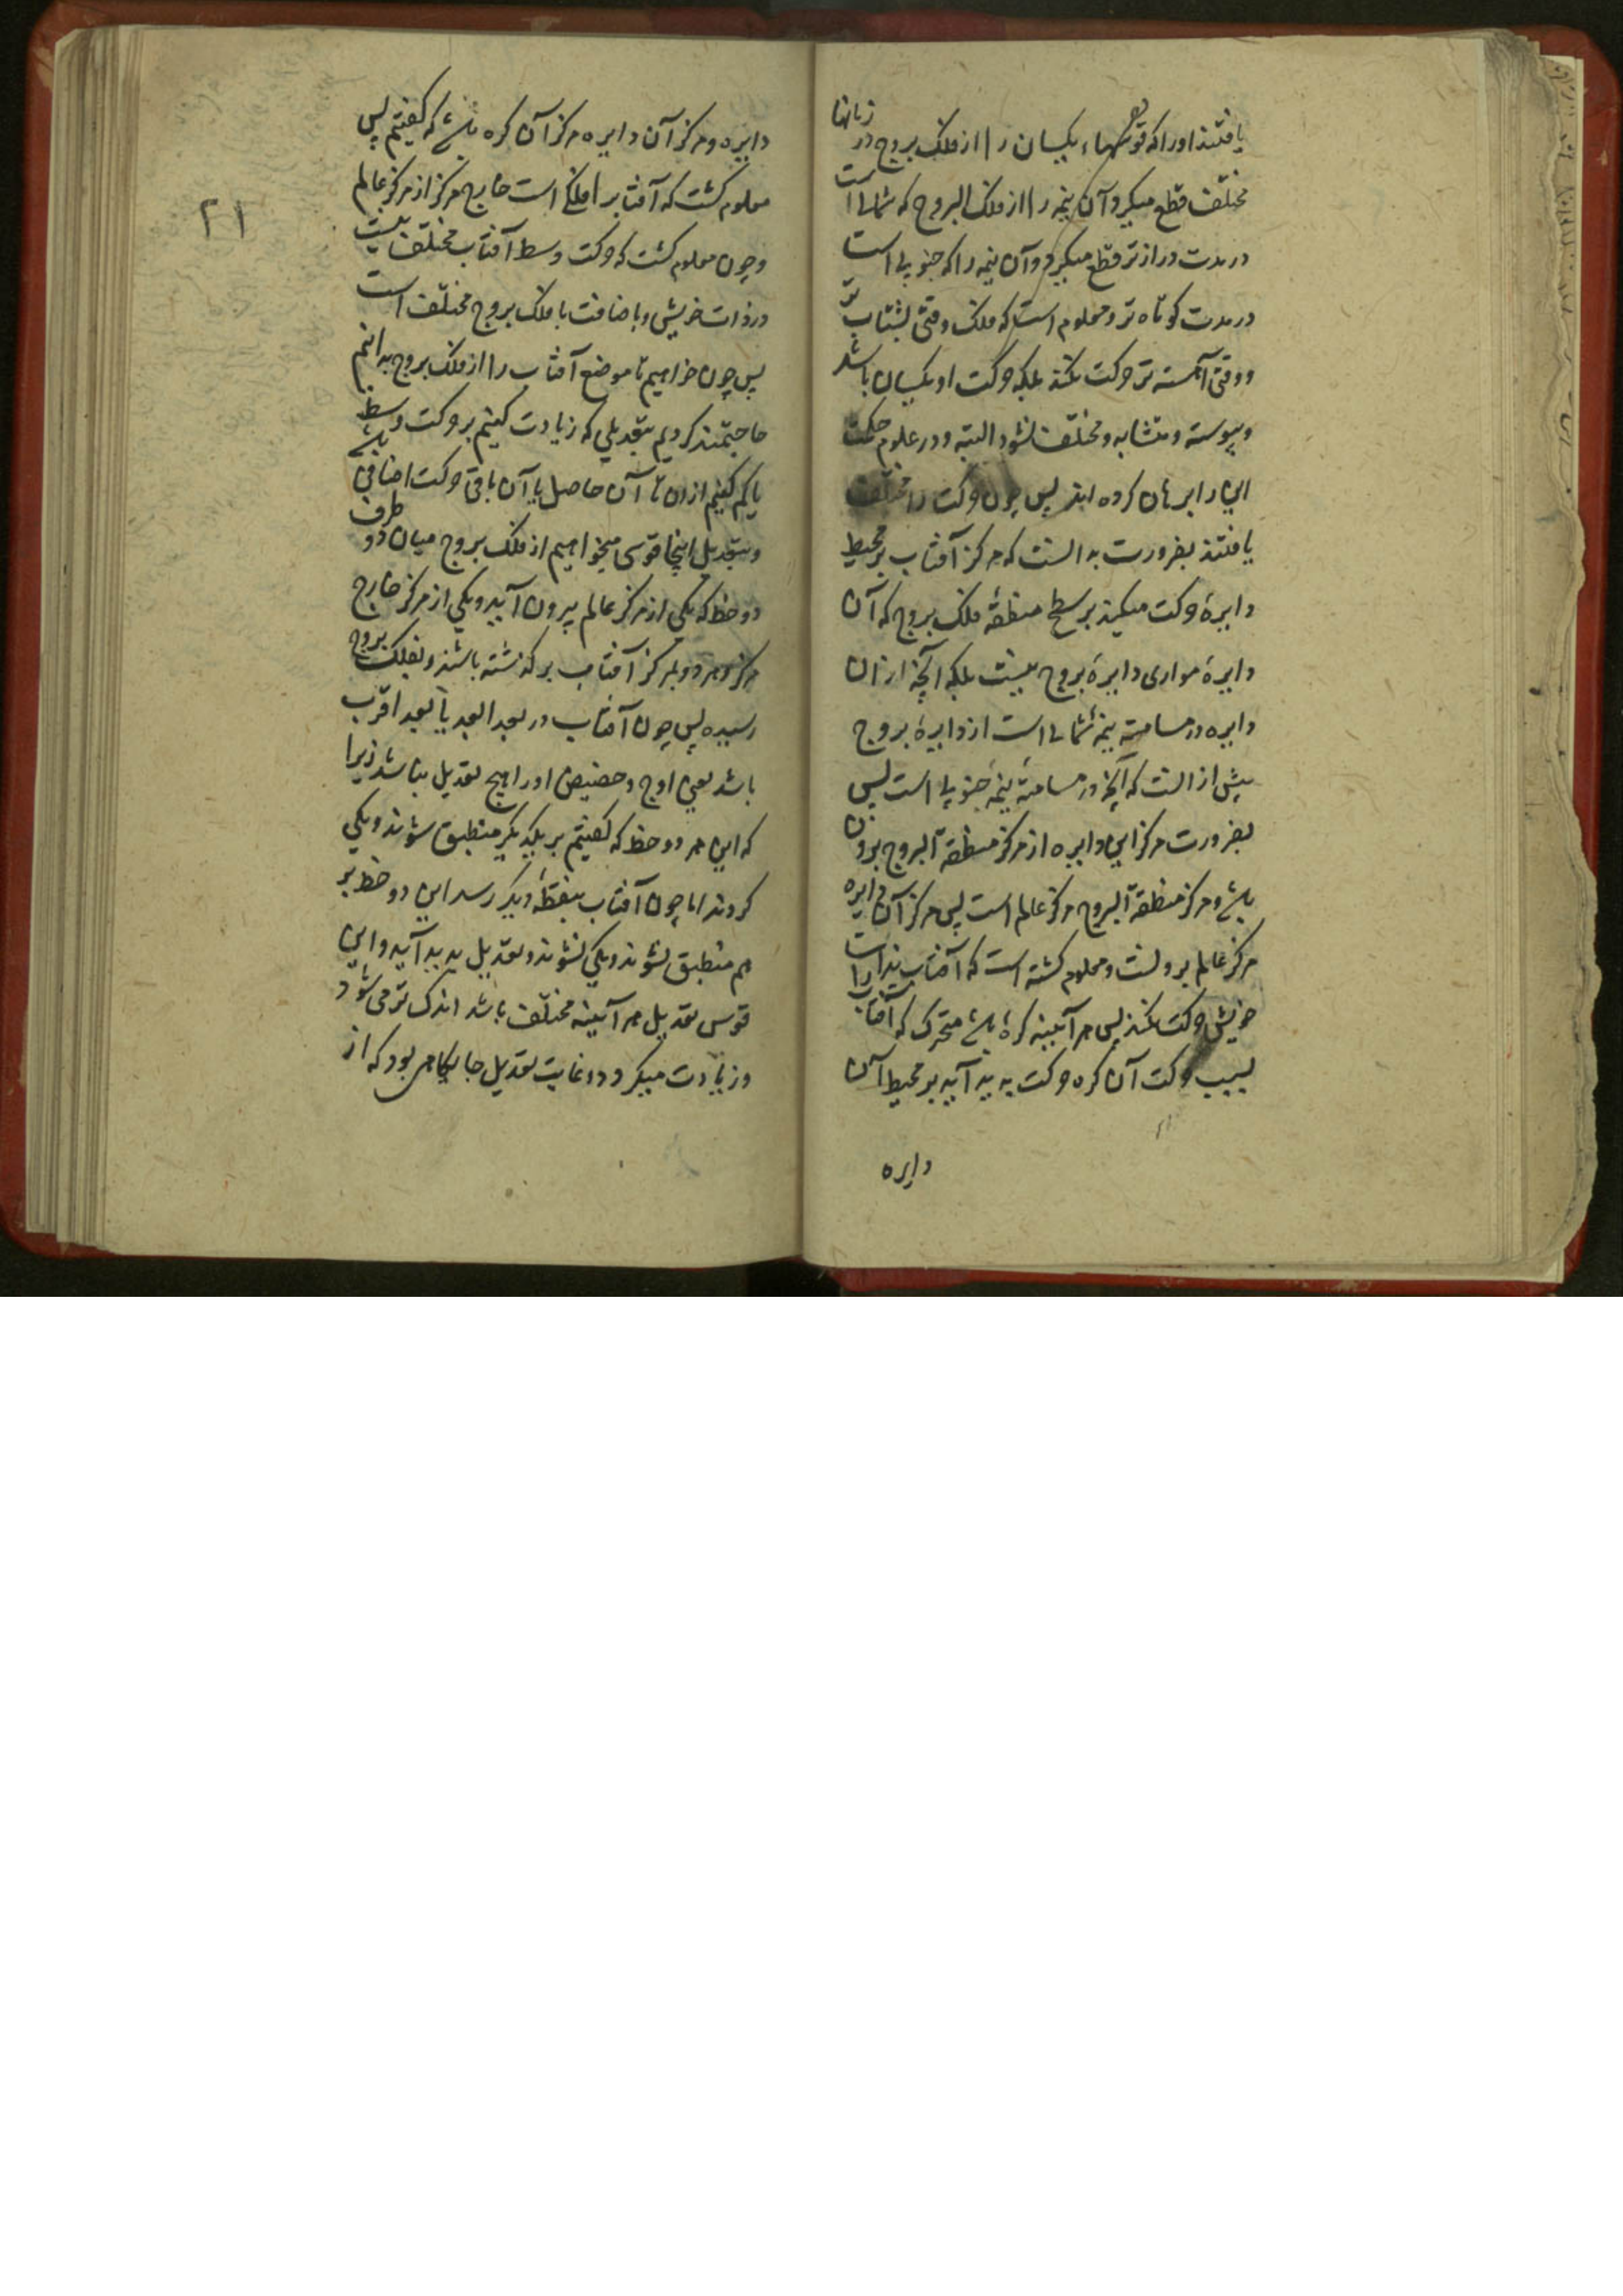 یافتند او را که قوسهاء یکسان را از فلک بروج در زمانها
مختلف قطع میکرد و آن نیمه را از فلک البروج که شمالی است
در مدت درازتر قطع میکرد و آن نیمه را که جنوبی است
در مدت کوتاه تر و معلوم است که فلک وقتی بشتاب تر
و وقتی آهسته تر حرکت نکند بلکه حرکت او یکسان باشد
و پیوسته و متشابه و مختلف نشود البته و در علوم حکمت
این را برهان کرده اند پس چون حرکت را مختلف
یافتند بضرورت بدانست که مرکز آفتاب بر محیط
دایرهٔ حرکت میکند بر سطح منطقهٔ فلک بروج که آن
دایرهٔ موازی دایرهٔ بروج نیست بلکه آنچه از ان
دایره در مسامتهٔ نیمهٔ شمالی است از دایرهٔ بروج
بیش از انست که آنچه در مسامتهٔ نیمهٔ جنوبی است پس
بضرورت مرکز این دایره از مرکز منطقة البروج برون
باشد و مرکز منطقة البروج مرکز عالم است پس مرکز آن دایره
مرکز عالم برونست و معلوم کشته است که آفتاب بذات
خویش حرکت نکند پس هر آیینه کرهٔ باشد متحرک که آفتاب را
بسبب حرکت آن کره حرکت پدید آید بر محیط آن
دایره
۲۱
دایره و مرکز آن دایره مرکز آن کره باشد که کفتیم پس
معلوم کشت که آفتاب را فلکی است خارج مرکز از مرکز عالم
و چون معلوم کشت که حرکت وسط آفتاب مختلف نیست
در ذات خویش و باضافت با فلک بروج مختلف است
پس چون خواهیم تا موضع آفتاب را از فلک بروج بدانیم
حاجتمند کردیم بتعدیلی که زیادت کنیم بر حرکت وسط
یا کم کنیم ازان تا آن حاصل یا آن باقی حرکت اضافی باشد
و بتعدیل اینجا قوسی میخواهیم از فلک بروج میان دو طرف
دو خط که یکی از مرکز عالم بیرون آید و یکی از مرکز خارج
مرکز و هر دو بمرکز آفتاب بر کذشته باشند و بفلک بروج
رسیده پس چون آفتاب در بعد ابعد یا بعد اقرب
باشد یعنی اوج و حضیض او را هیچ تعدیل نباشد زیرا
که این هر دو خط که کفتیم بر یکدیکر منطبق شوند و یکی
کردند اما چون آفتاب بنقطهٔ دیکر رسد این دو خط بر
هم منطبق نشوند و یکی نشوند و تعدیل پدید آید و این
قوس تعدیل هر آیینه مختلف باشد اندک تر می شود
و زیادت میکرد و غایت تعدیل جایکاهی بود که از